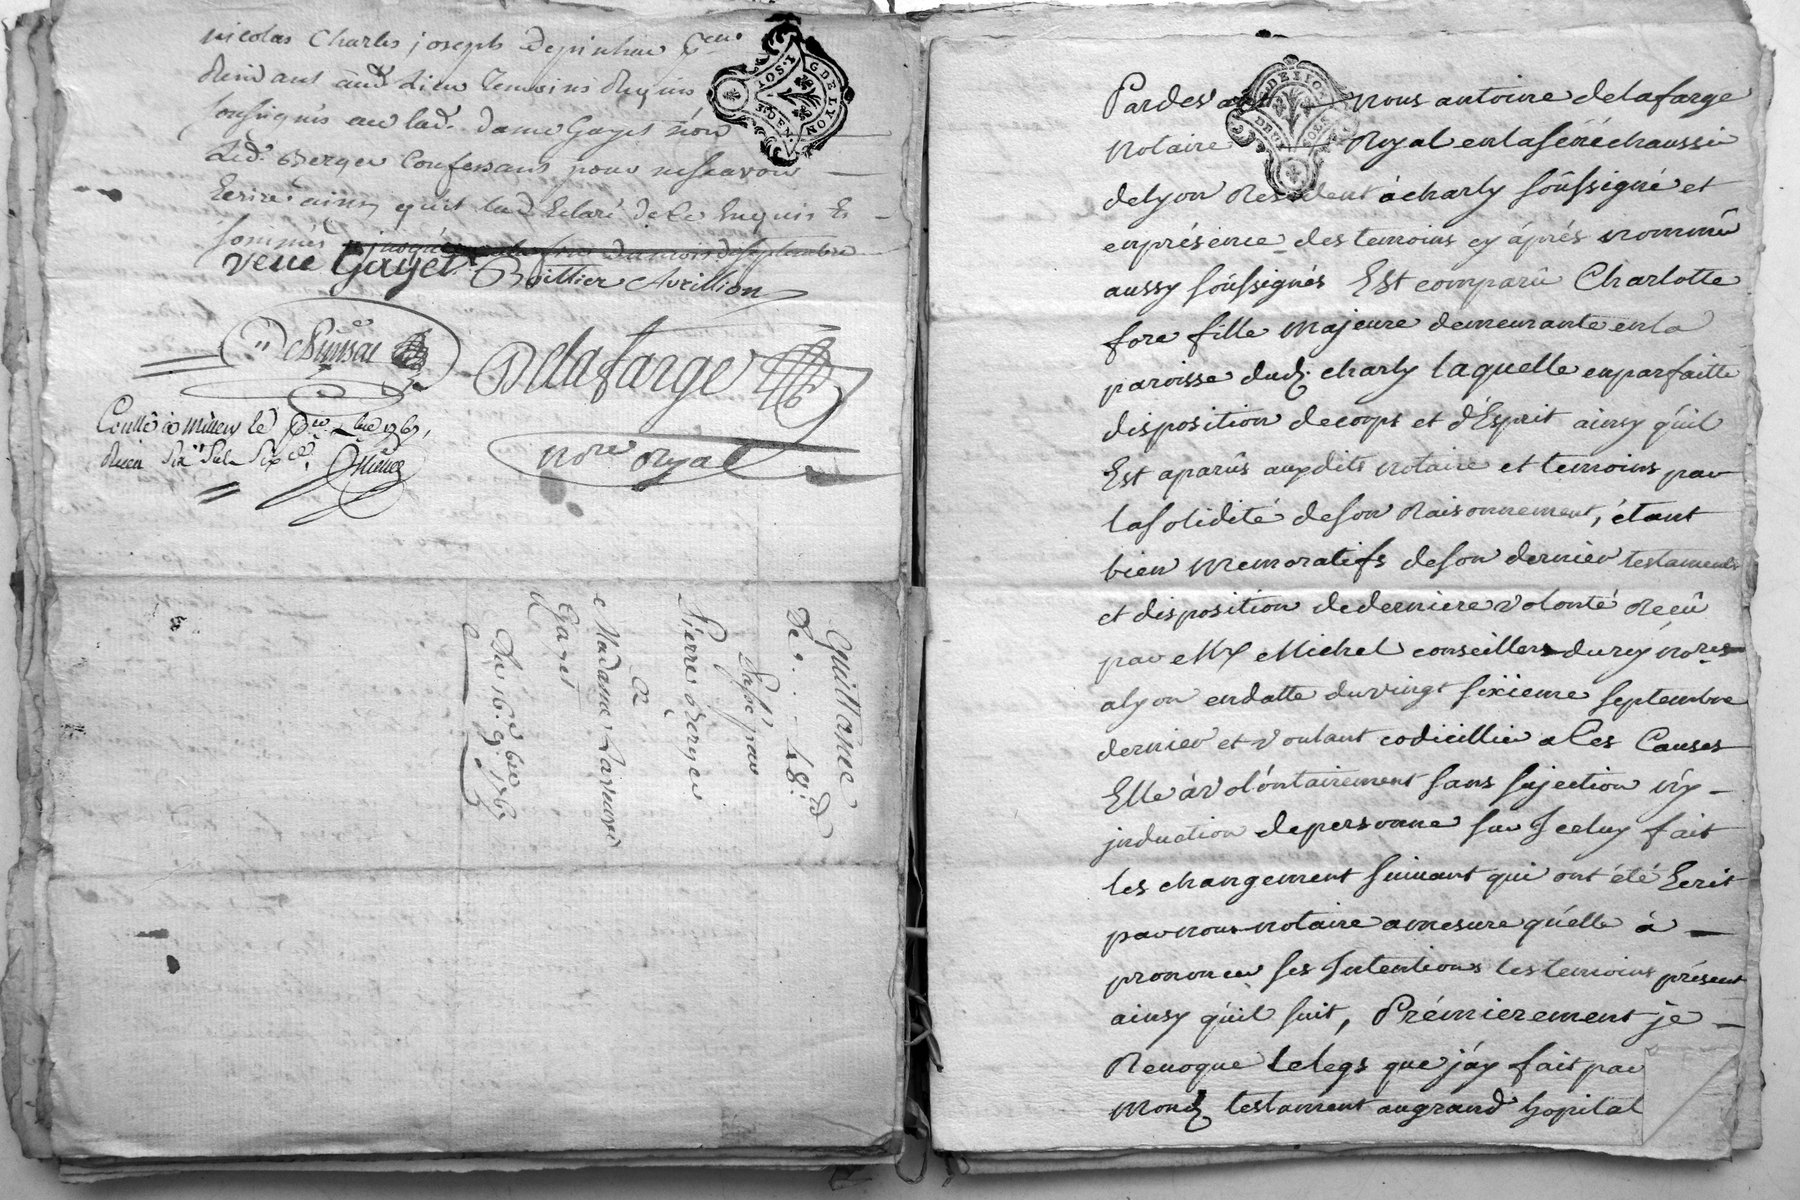 nicolas Charles joseph
Residant aud. Lieu Temoins Requis
soussignés avec lad. dame Gayet non
Led. Berger Confessant pour ne scavoir
Ecrire ainsy qu'il la declaré de ce Enquis Et
sommés
veuve Gayet Boittier Avrillion
Delafarge
nore Royal
G DE LYON
SOL
DEN.
Quittance
De . . . 48.
Passé par
Pierre Berger
a
Madame La veuve
Gayet
Du 16. 9.bre 176
Pardevant nous antoine delafarge
notaire Royal enlasénéchaussée
delyon Resident àcharly soussigné et
enprésence des temoins cy aprés nommés
aussy soussignés Est comparû Charlotte
fore fille majeure demeurante enla
paroisse dud. charly laquelle enparfaitte
disposition decorps et d'Esprit ainsy quil
Est aparûs auxdits notaire et temoins par
lasolidité deson Raisonnement, étant
bien memoratifs deson dernier testament
et disposition dederniere volonté Reçû
par Me Michel conseillers duroy nores
alyon endatte duvingt sixieme septembre
dernier et voulant codicillier a Ces Causes
Elle à volontairement sans sujection ny
jnduction depersonne sur Jceluy fait
les changement suivant qui ont été Ecrit
parnous notaire amesure qu'elle à
prononcer ses Jntentions les temoins présent
ainsy quil suit, Prémierement je
Revoque le legs que jáy fait par
mond. testament augrand hopital